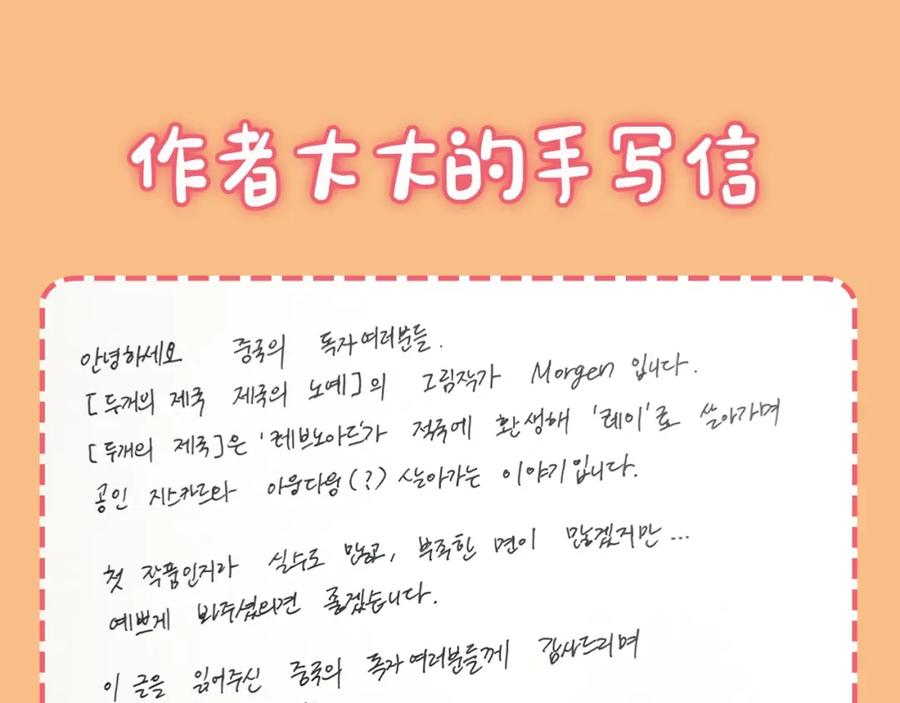 作者大大的手写信
안녕하세요 중국의 독자여러분들.
[두개의 제국 제국의 노예]의 그림작가 Morgen 입니다.
[두개의 제국]은 '레브노아드'가 적국에 환생해 '레이'로 살아가며
공인 지스카르와 아웅다웅(?) 살아가는 이야기입니다.
첫 작품인지라 실수도 많고, 부족한 면이 많겠지만...
예쁘게 봐주셨으면 좋겠습니다.
이 글을 읽어주신 중국의 독자여러분들께 감사드리며